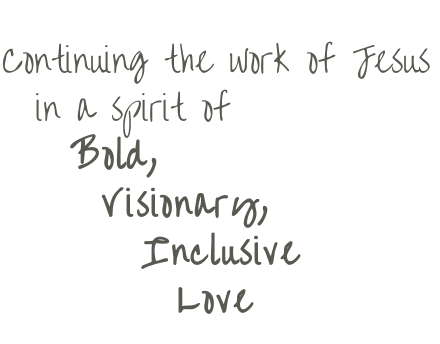 Continuing the work of Jesus
in a spirit of
Bold,
Visionary,
Inclusive
Love